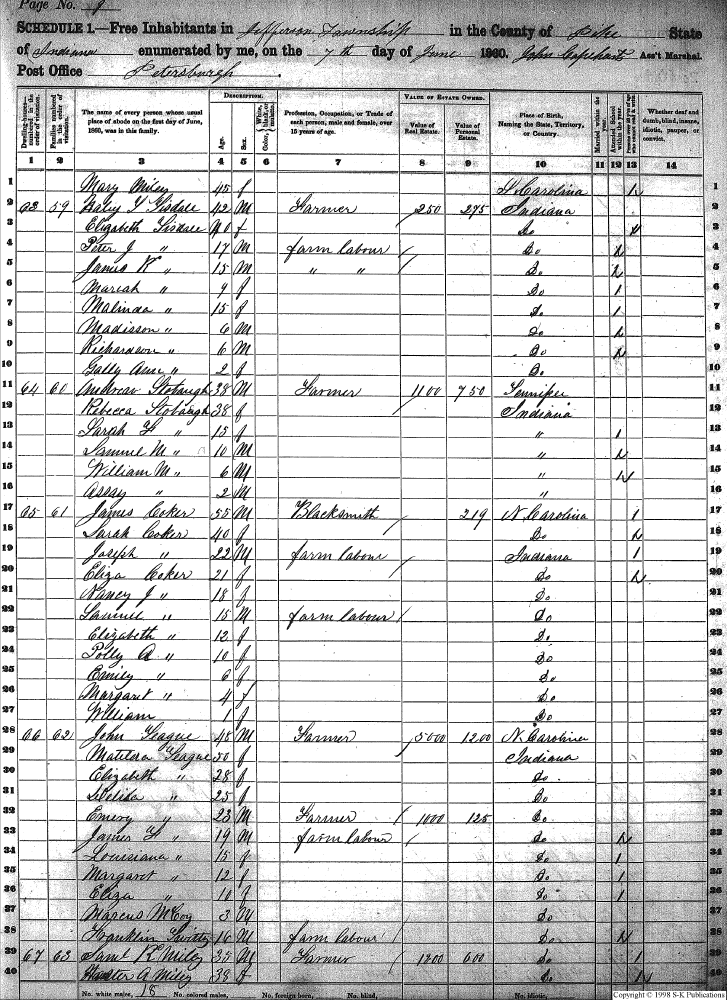 Page No. 9
SCHEDULE 1.—Free Inhabitants in Jefferson Township in the County of Pike State
of Indiana enumerated by me, on the 7th day of June 1860. John Capehart Ass't Marshal.
Post Office Petersburgh.
Dwelling-houses—numbered in the order of visitation. Families numbered in the order of visitation. The name of every person whose usual place of abode on the first day of June, 1860, was in this family. DESCRIPTION. Age. Sex. Color, White, black, or mulatto. Profession, Occupation, or Trade of each person, male and female, over 15 years of age. VALUE OF ESTATE OWNED. Value of Real Estate. Value of Personal Estate. Place of Birth, Naming the State, Territory, or Country. Married within the year. Attended School within the year. Persons over 20 y'rs of age who cannot read & write. Whether deaf and dumb, blind, insane, idiotic, pauper, or convict.
1 2 3 4 5 6 7 8 9 10 11 12 13 14
1 Mary Miley 45 f S. Carolina 1 1
2 63 59 Tisdale 42 M Farmer 250 275 Indiana 2
3 Elizabeth Tisdale 40 f Do 3
4 Peter J " 17 M farm labour Do 4
5 James K " 15 M " " Do 5
6 Mariah " 9 f Do 1 6
7 Malinda " 15 f Do 1 7
8 Madisson " 6 M Do 8
9 Richardson " 6 M Do 9
10 Sally Ann " 2 f Do 10
11 64 60 Andrew Stobaugh 38 M Farmer 1100 750 11
12 Rebecca Stobaugh 38 f Indiana 12
13 Sarah " 13 f " 1 13
14 Samuel M " 10 M " 14
15 William M " 6 M " 15
16 " 2 M " 16
17 65 61 James Coker 55 M Blacksmith 219 N. Carolina 1 17
18 Sarah Coker 40 f Do 18
19 Joseph " 22 M farm labour Indiana 1 19
20 Eliza Coker 21 f Do 20
21 Nancy J " 18 f Do 21
22 Samuel " 15 M farm labour Do 22
23 Elizabeth " 12 f Do 23
24 Polly A " 10 f Do 24
25 Emily " 6 f Do 25
26 Margaret " 4 f Do 26
27 William 1 f Do 27
28 66 62 John League 48 M Farmer 5000 1200 N. Carolina 28
29 Matilda League 50 f Indiana 29
30 Elizabeth " 28 f Do 30
31 " 25 f Do 31
32 Emery " 23 M Farmer 1000 125 Do 32
33 James " 19 M farm labour Do 33
34 Louisiana " 15 f Do 1 34
35 Margaret " 12 f Do 1 35
36 Eliza " 10 f Do 1 36
37 Marcus McCoy 3 M Do 37
38 Franklin 16 M farm labour Do 38
39 67 63 Saml K Miley 35 M Farmer 1200 600 Do 1 39
40 A Miley 38 f Do 40
No. white males, 18 No. colored males, No. foreign born, No. blind, No. idiotic,
Copyright © 1998 S-K Publications